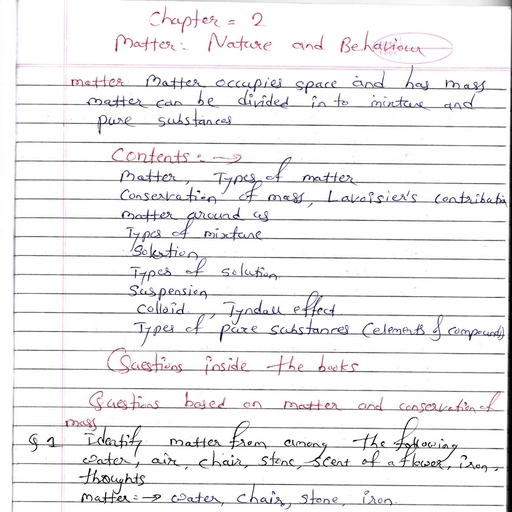 Chapter = 2
Matter: Nature and Behaviour
matter Matter occupies space and has mass
matter can be divided in to mixture and
pure substances
Contents: →
Matter, Types of matter
Conservation of mass, Lavoisier's contributin
matter around us
Types of mixture
Solution
Types of solution
Suspension
Colloid, Tyndall effect
Types of pure substances (elements & compounds)
Questions inside the books
Questions based on matter and conservation of
mass
Q 1 Identify matter from among the following
water, air, chair, stone, scent of a flower, iron,
thoughts
Matter:→ water, chair, stone, iron.